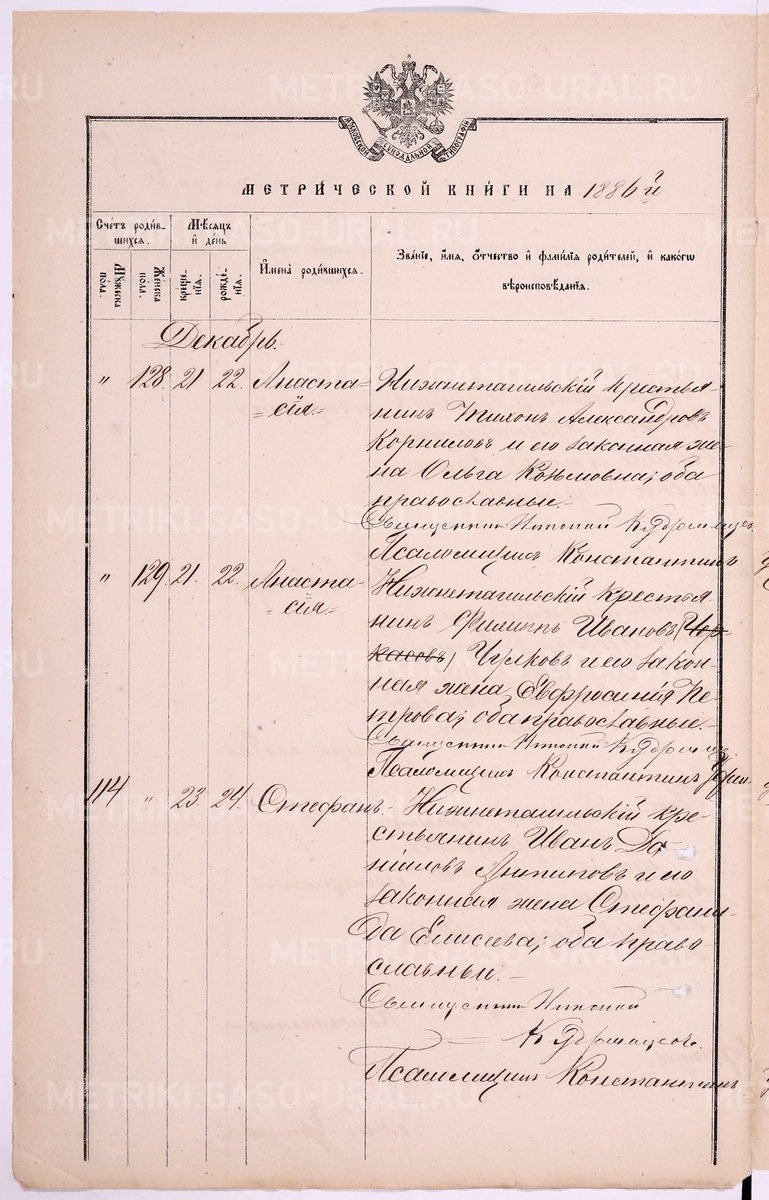 МОСКОВСКОЙ СѴНОДАЛЬНОЙ ТИПОГРАФІИ
МЕТРИ́ЧЕСКОЙ КНИ́ГИ НА 1886й
Сче́тъ роди́в-
шихся.
Мѣсяцъ
и де́нь
Имена̀ роди́вшихся.
Зва́ніе, и́мя, о́тчество и фами́лія роди́телей, и како́гѡ
вѣроисповѣ́данія.
Му́жеска
по́ла.
Же́нска
по́ла.
креще́-
нія.
рожде́-
нія.
Декабрь.
" 128. 21 22. Анаста-
=сія.=
Нижнетагильскій крестья-
нинъ Тихонъ Александровъ
Корниловъ и его законная же-
на Ольга Козьмовна; оба
православные.-
Священникъ
Псаломщикъ Константинъ
" 129. 21. 22. Анаста-
=сія.=
Нижнетагильскій крестья-
нинъ Филиппъ Ивановъ (Чер-
касовъ) Чулковъ и его закон-
ная жена Евфросинія Пе-
трова; оба православные.-
Священникъ
Псаломщикъ Константинъ
114 " 23. 24. Стефанъ.-
Нижнетагильскій кре-
стьянинъ Иванъ Да-
ніиловъ Антиповъ и его
законная жена Стефани-
да Елисеева; оба право
славные.-
Священникъ
Псаломщикъ Константинъ
METRIKI.GASO-URAL.RU